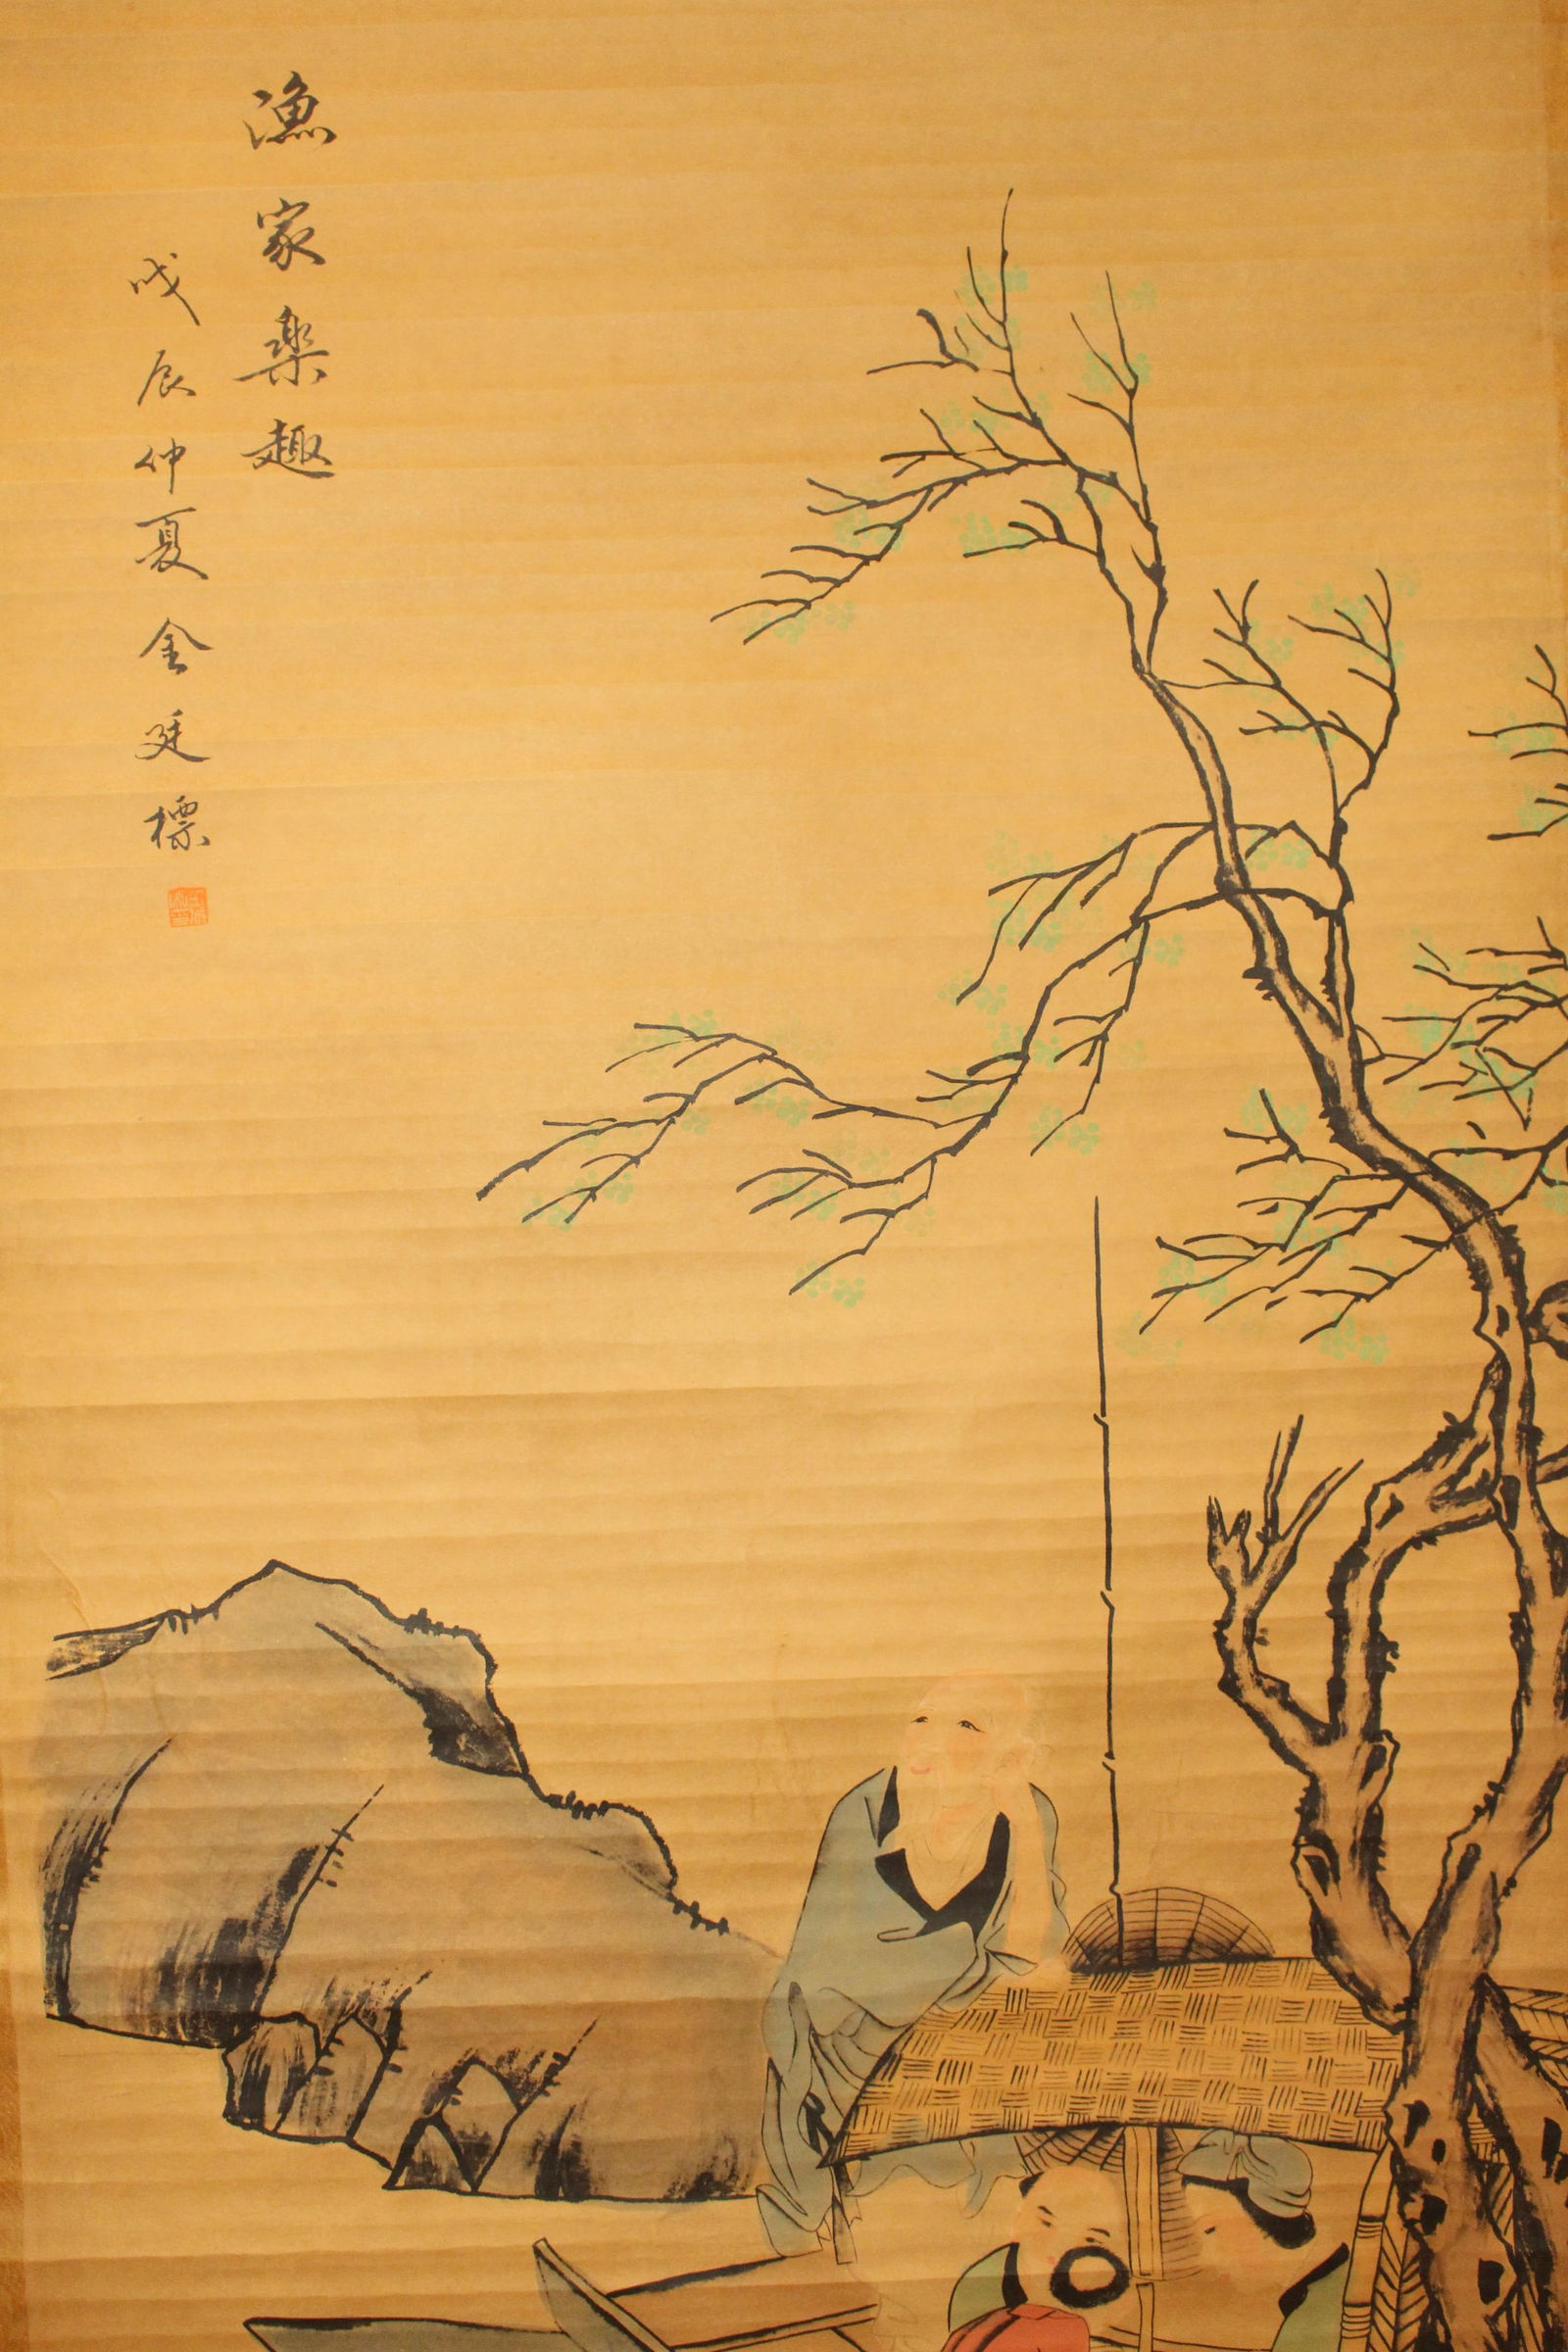 渔家楽趣
戊辰仲夏金廷標